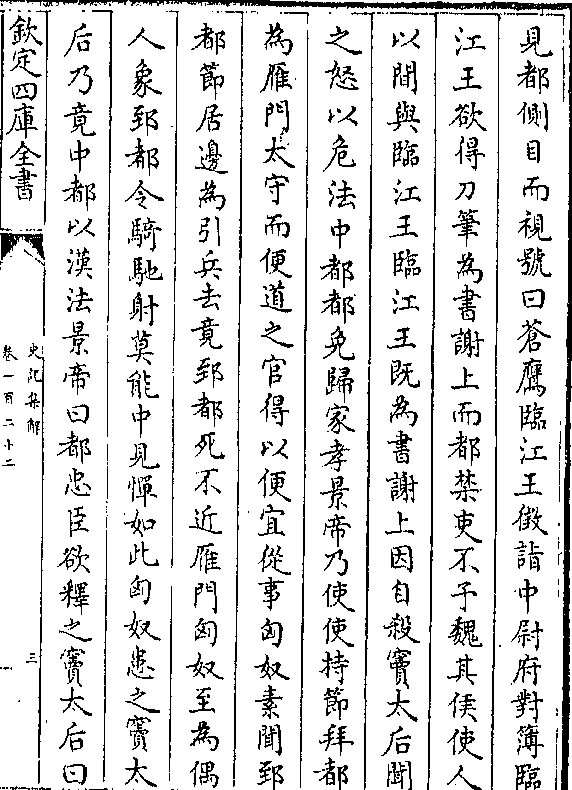 見都側目而視號曰蒼鷹臨江王徵詣中尉府對簿臨
江王欲得刀筆為書謝上而都禁吏不予魏其侯使人
以間與臨江王臨江王既為書謝上因自殺竇太后聞
之怒以危法中都都免歸家孝景帝乃使使持節拜都
為雁門太守而便道之官得以便宜從事匈奴素聞郅
都節居邊為引兵去竟郅都死不近雁門匈奴至為偶
人象郅都令騎馳射莫能中見憚如此匈奴患之竇太
后乃竟中都以漢法景帝曰都忠臣欲釋之竇太后曰
欽定四庫全書
史記集解
卷一百二十二
三